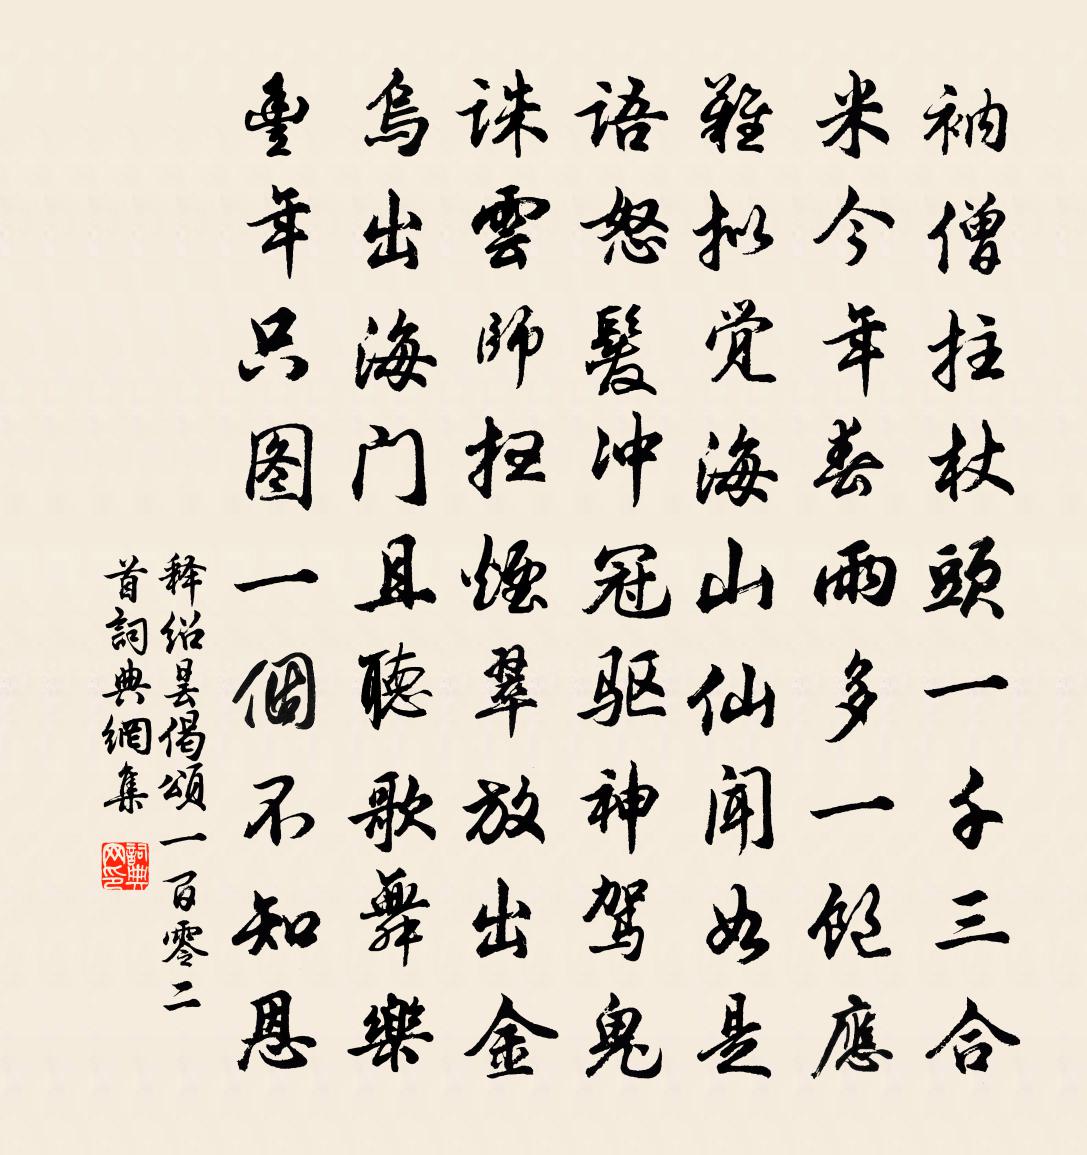 衲僧拄杖頭一千三合
米今年春雨多一飽應
難拟觉海山仙闻如是
语怒髮冲冠驱神驾鬼
诛雲师扫煙翠放出金
烏出海门且聽歌舞樂
豊年只图一個不知恩
释绍昙偈颂一百零二
首詞典網集
詞典网印